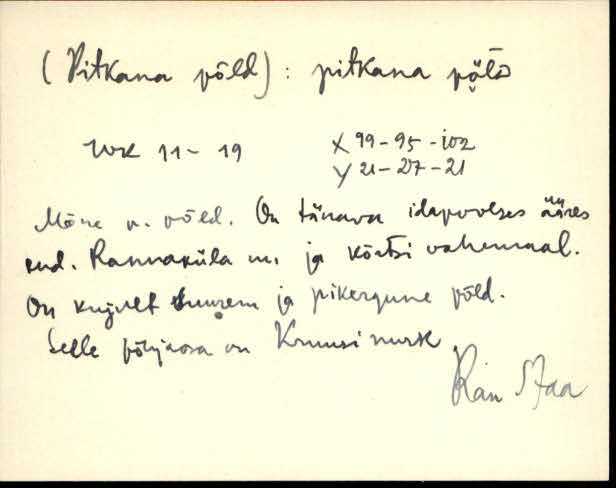 (Pitkana põld) : pitkana põlᴅ
WK 11-19
X 99-95-102
Y 21-27-21
Mõne n. põld. On tänava idapoolses ääres
end. Rannaküla m. ja kõrtsi vahemaal.
On kujult suurem ja pikergune põld.
Selle põhjaosa on Kruusi nurk.